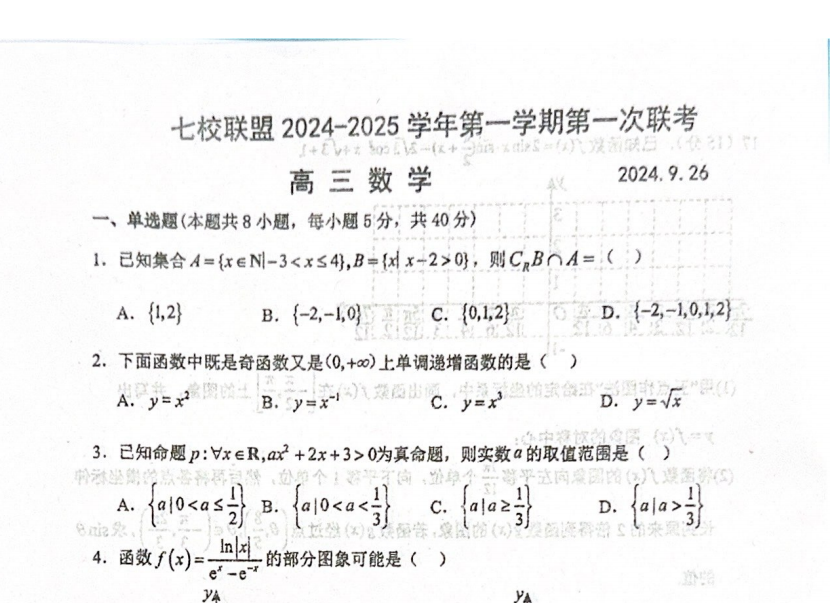 七校联盟 2024-2025 学年第一学期第一次联考
高 三 数 学 2024.9.26
一、单选题(本题共 8 小题，每小题 5 分，共 40 分)
1．已知集合 A={x∈N|-3<x≤4},B={x| x-2>0}，则 C_R B∩A=（ ）
A．{1,2} B．{-2,-1,0} C．{0,1,2} D．{-2,-1,0,1,2}
2．下面函数中既是奇函数又是(0,+∞)上单调递增函数的是（ ）
A．y=x² B．y=x⁻¹ C．y=x³ D．y=√x
3．已知命题 p:∀x∈R,ax²+2x+3>0为真命题，则实数 a 的取值范围是（ ）
A．{a|0<a≤1/2} B．{a|0<a<1/3} C．{a|a≥1/3} D．{a|a>1/3}
4．函数 f(x)=ln|x|/(eˣ-e⁻ˣ) 的部分图象可能是（ ）
y y